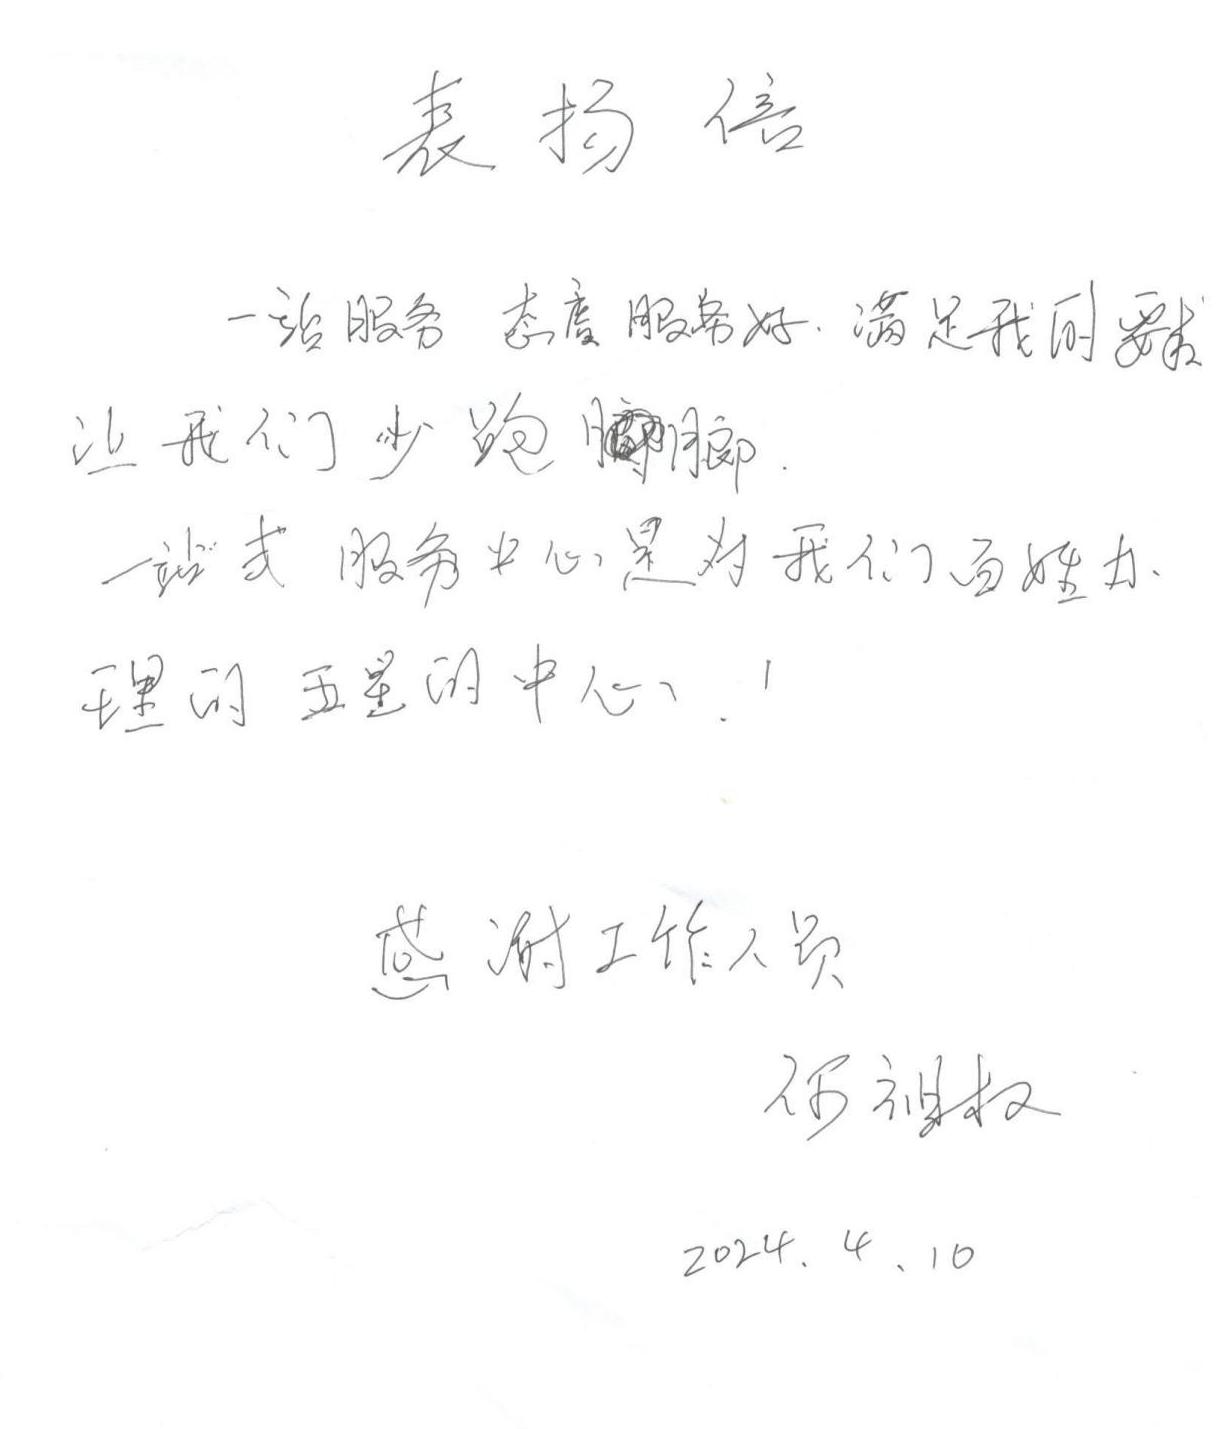 表扬信
一站服务 态度服务好. 满足我的要求
让我们少跑脚.
一站式 服务中心是对我们百姓办
理的五星的中心!
感谢工作人员
何祖权
2024.4.10